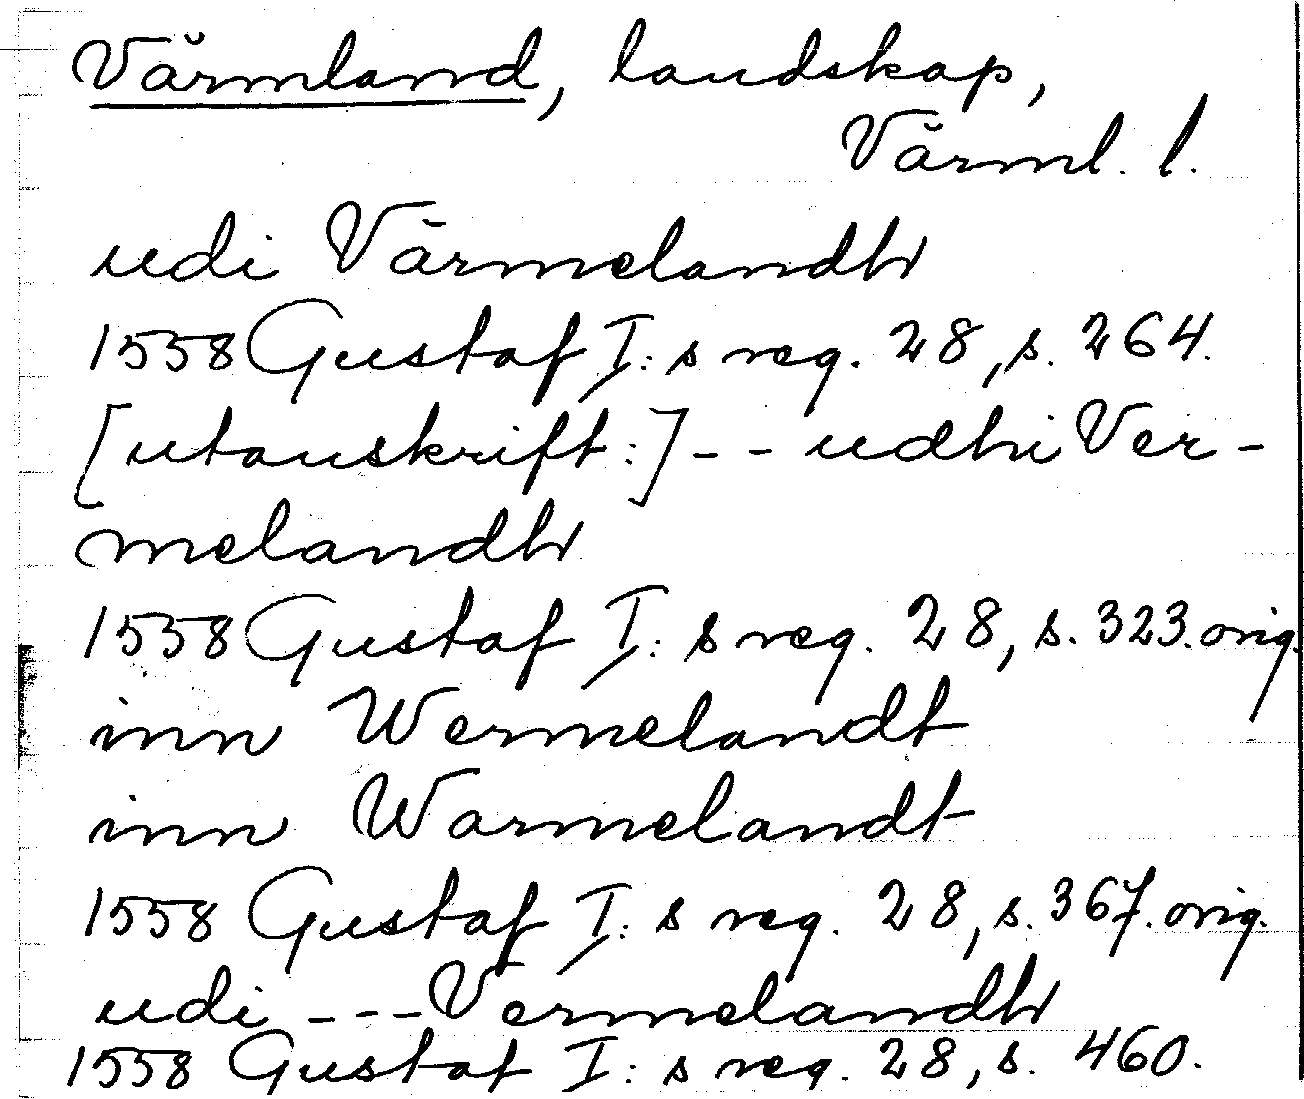 Värmland, landskap,
Värml. l.
udi Värmelandh
1558 Gustaf I:s reg. 28, s. 264.
[utanskrift:] - - udhi Ver-
melandh
1558 Gustaf I:s reg. 28, s. 323. orig.
inn Wermelandt
inn Warmelandt
1558 Gustaf I:s reg. 28, s. 367. orig.
udi - - - Vermelandh
1558 Gustaf I:s reg. 28, s. 460.